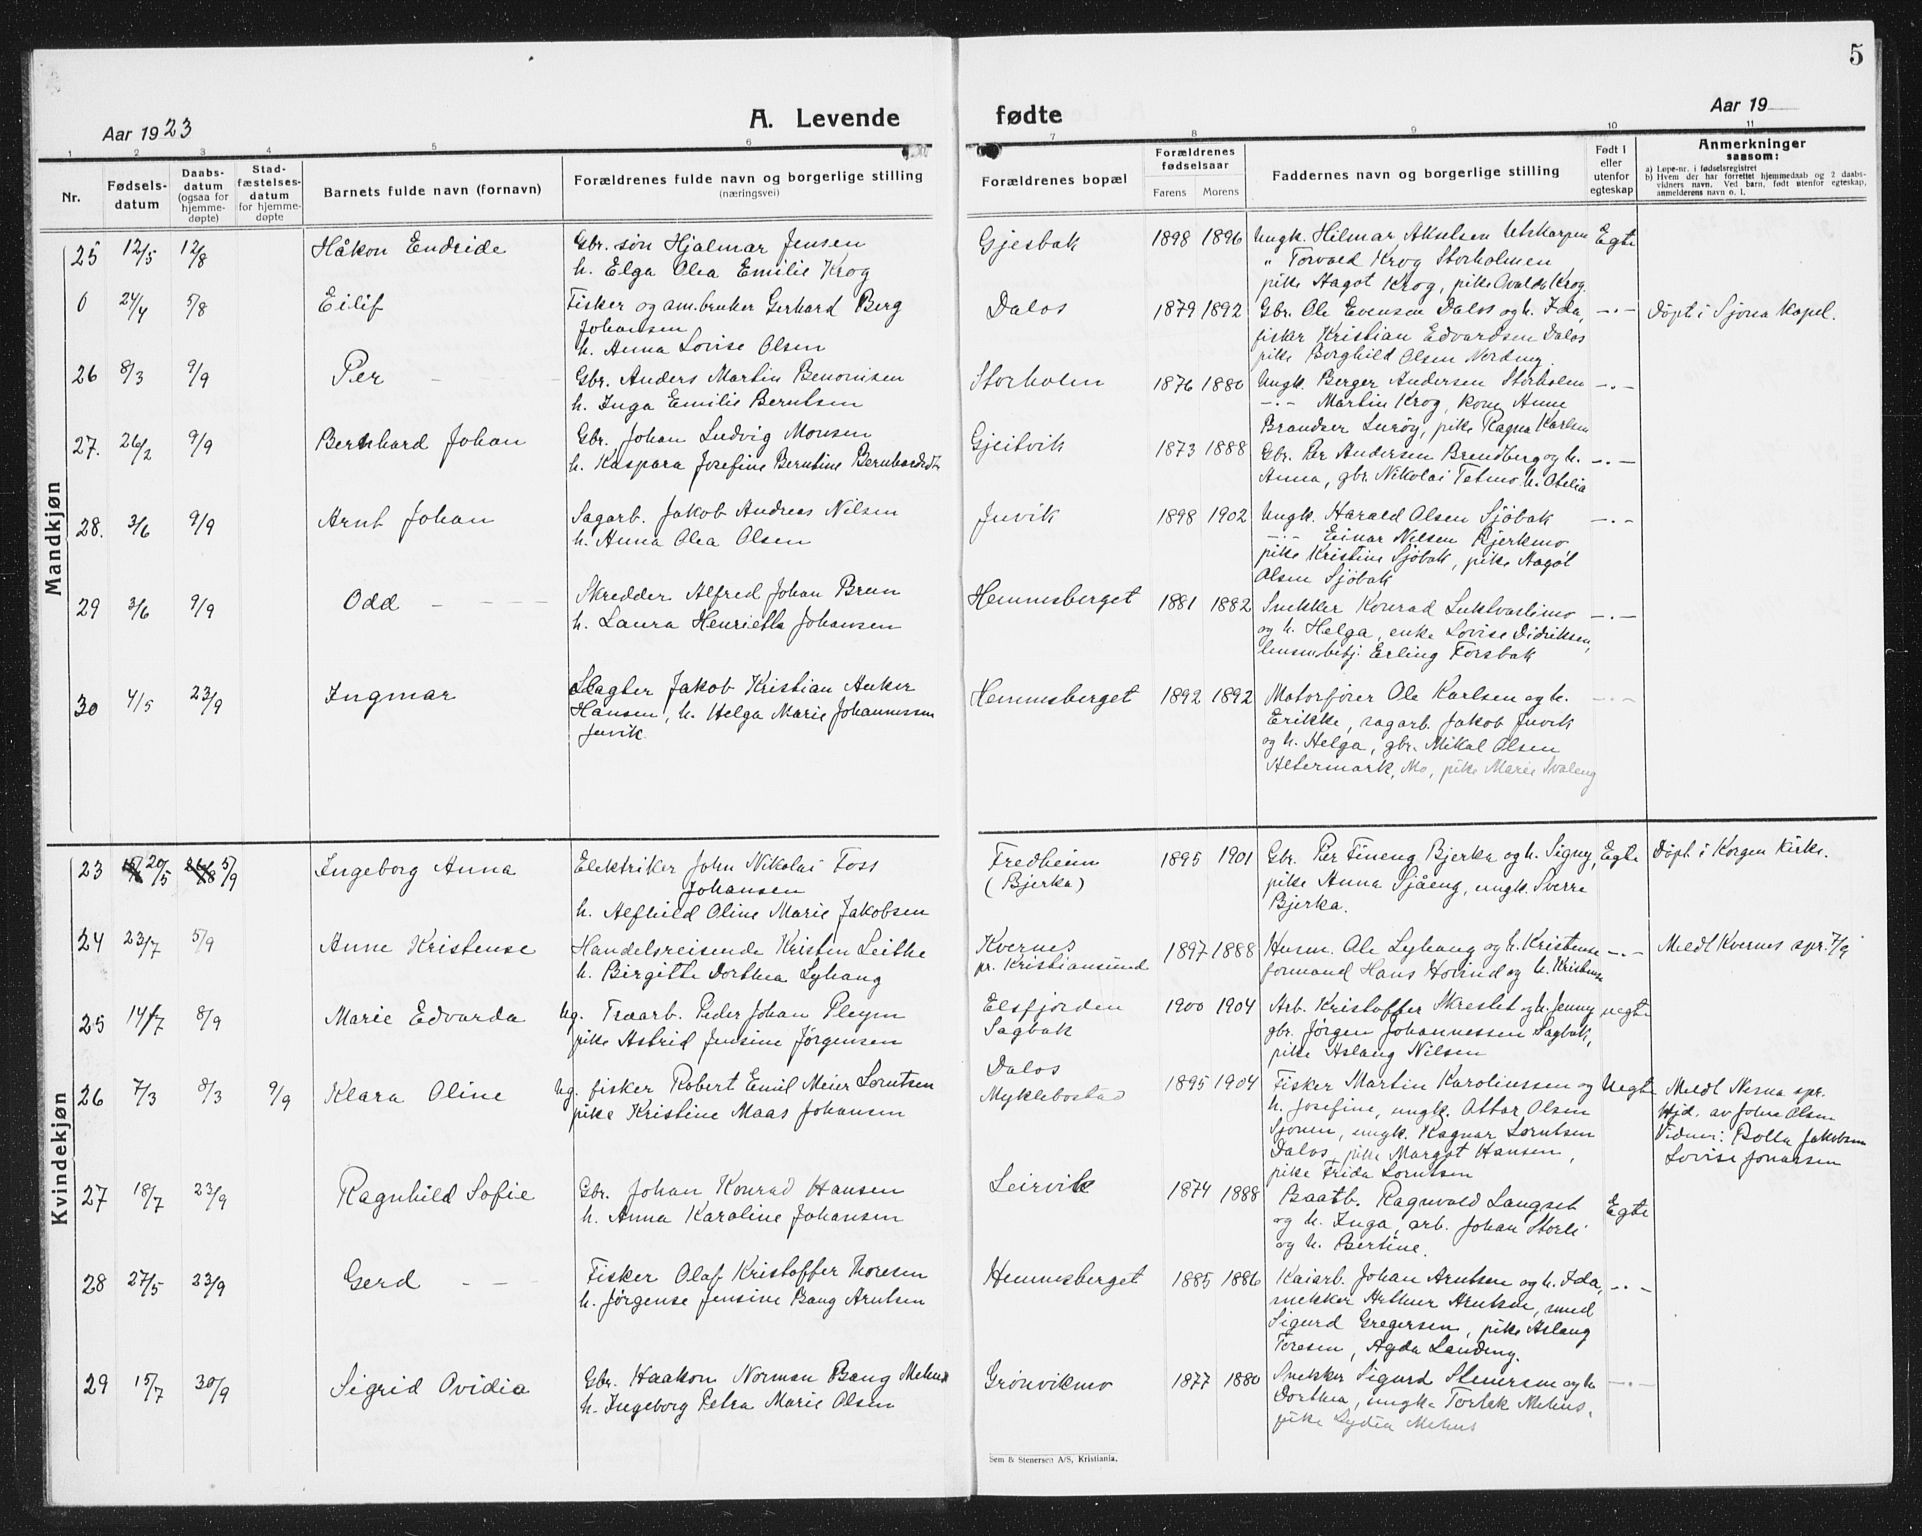 5
Aar 1923
A. Levende fødte
Aar 19
1 2 3 4 5 6 7 8 9 10 11
Nr.
Fødselsdatum
Daabsdatum (ogsaa for hjemmedøpte)
Stadfæstelsesdatum for hjemmedøpte
Barnets fulde navn (fornavn)
Forældrenes fulde navn og borgerlige stilling
(næringsvei)
Forældrenes bopæl
Forældrenes fødselsaar
Farens Morens
Faddernes navn og borgerlige stilling
Født i eller utenfor egteskap
Anmerkninger
saasom:
a) Løpe-nr. i fødselsregistret
b) Hvem der har forrettet hjemmedaab og 2 daabsvidners navn. Ved barn, født utenfor egteskap, anmelderens navn o. l.
Mandkjøn
25 12/5 12/8 Håkon Endride
Gbr. søn Hjalmar Jensen
h. Elga Olea Emilie Krog
Gjesbak 1898 1896
Ungk. Hilmar Akselsen Utskarpen
" Torvald Krog Storholmen
pike Aagot Krog, pike Ovalde Krog
Egte
0 24/4 5/8 Eilif
Fisker og am.bruker Gerhard Berg
Johansen
h. Anna Lovise Olsen
Dalos 1879 1892
Gbr. Ole Evensen Dalos og h. Ida,
fisker Kristian Edvardsen Dalos
pike Borghild Olsen Nerdnug
-.- Døpt i Sjona Kapel.
26 8/3 9/9 Per - - -
Gbr. Anders Martin Benonisen
h. Inga Emilie Berntsen
Storholm 1876 1880
Ungk. Berger Andersen Storholm
-.- Martin Krog, kone Anne
Brandser Lurøy, pike Ragna Karlsen
-.-
27. 26/2 9/9 Bernhard Johan
Gbr. Johan Ludvig Monsen
h. Kaspara Josefine Berntine Bernhardsdt.
Gjeitvik 1873 1888
Gbr. Per Andersen Brendberg og h.
Anna, gbr. Nikolai Tetmo h. Otelia
-.-
28. 3/6 9/9 Arnt Johan
Sagarb. Jakob Andreas Nilsen
h. Anna Olea Olsen
Juvik 1898 1902
Ungk. Harald Olsen Sjöbak
-.- Einar Nilsen Bjerkmo
pike Kristine Sjöbak, pike Aagot
Olsen Sjöbak
-.-
29 3/6 9/9 Odd - - - -
Skredder Alfred Johan Brun
h. Laura Henriette Johansen
Hemnesberget 1881 1882
Snekker Konrad Luktvatlimo
og h. Helga, enke Lovise Didriksen,
lensm.betj. Erling Forsbak
-.-
30 4/5 23/9 Ingmar
Slagter Jakob Kristian Anker
Hansen, h. Helga Marie Johannessen
Juvik
Hemnesberget 1892 1892
Motorfører Ole Karlsen og h.
Erikke, sagarb. Jakob Juvik
og h. Helga, gbr. Mikal Olsen
Altermark, Mo, pike Marie Svaleng
-.-
Kvindekjøn
23 20/5 5/9 Ingeborg Anna
Elektriker John Nikolai Foss
Johansen
h. Alfhild Oline Marie Jakobsen
Fredheim
(Bjerka)
1895 1901
Gbr. Per Fineng Bjerka og h. Signy,
pike Anna Sjåeng, ungk. Sverre
Bjerka.
Egte Døpt i Korgen Kirke.
24 23/7 5/9 Anne Kristense
Handelsreisende Kristen Leithe
h. Birgitte Dorthea Lyhaug
Kvernes
pr. Kristiansund
1897 1888
Husm. Ole Lyhaug og h. Kristense
formand Hans Hovind og h. Kristense
-.- Medl Kvernes spr. 7/9
25 14/7 8/9 Marie Edvarda
Ug. Traarb. Peder Johan Pleym
pike Astrid Jensine Jørgensen
Elsfjorden
Sagbak
1900 1904
Arb. Kristoffer Skrestet og h. Jenny
gbr. Jørgen Johannessen Sagbak,
pike Aslaug Nilsen
uegte
26 7/3 8/3 9/9 Klara Oline
Ug. fisker Robert Emil Meier Lorntsen
pike Kristine Maas Johansen
Dalos
Myklebostad
1895 1904
Fisker Martin Karolinssen og
h. Josefine, ungk. Ottar Olsen
Sjonen, ungk. Ragnar Lorntsen
Dalos, pike Margot Hansen,
pike Frida Lorntsen
Uegte
Medl Nesna spr.
Hjd. av Johna Olsen
Vidner: Bolla Jakobsen
Lovise Jonassen
27 18/7 23/9 Ragnhild Sofie
Gbr. Johan Konrad Hansen
h. Anna Karoline Johansen
Leirvik 1874 1888
Baatb. Ragnvald Langset
og h. Inga, arb. Johan Storli
og h. Bertine.
Egte
28 27/5 23/9 Gerd - - -
Fisker Olaf Kristoffer Thoresen
h. Jørgense Jensine Bang Arntsen
Hemnesberget 1885 1886
Kaiarb. Johan Arntsen og h. Ida,
snekker Arthur Arntsen, smed
Sigurd Gregersen, pike Aslaug
Toresen, Agda Landeng.
-.-
29 15/7 30/9 Sigrid Ovidia
Gbr. Haakon Norman Bang Mehus
h. Ingeborg Petra Marie Olsen
Grønvikmo 1877 1880
Snekker Sigurd Stenersen og h.
Dorthea, ungk. Torleik Mehus,
pike Lydia Mehus
-.-
Sem & Stenersen A/S, Kristiania.